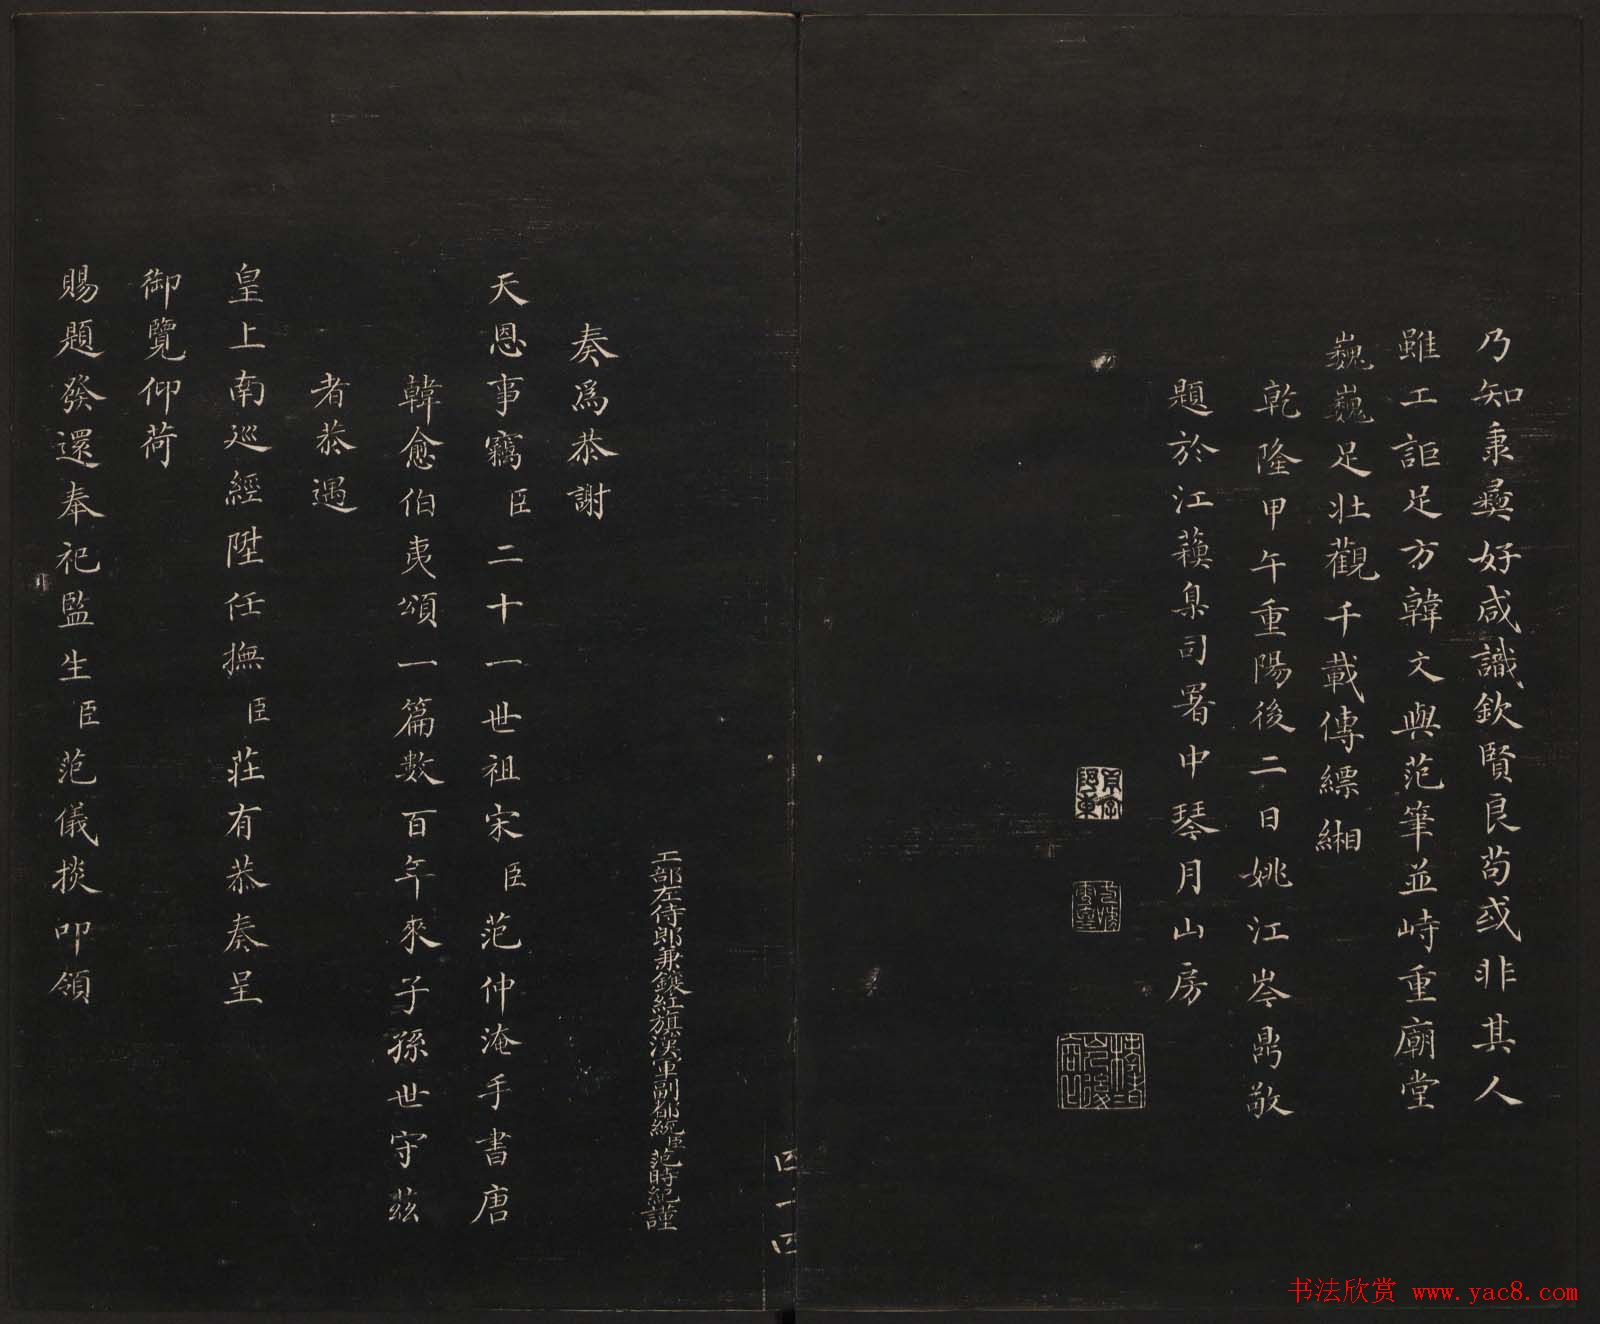 乃知秉彝好咸識欽賢良苟或非其人
雖工詎足方韓文與范筆並峙重廟堂
巍巍足壯觀千載傳縹緗
乾隆甲午重陽後二日姚江岑鼎敬
題於江蘓臬司署中琴月山房
四十四
工部左侍郎兼鑲紅旗漢軍副都統臣范時紀謹
奏爲恭謝
天恩事竊臣二十一世祖宋臣范仲淹手書唐
韓愈伯夷頌一篇數百年來子孫世守茲
者恭遇
皇上南巡經陞任撫臣莊有恭奏呈
御覽仰荷
賜題發還奉祀監生臣范儀掞叩領
书法欣赏 www.yac8.com